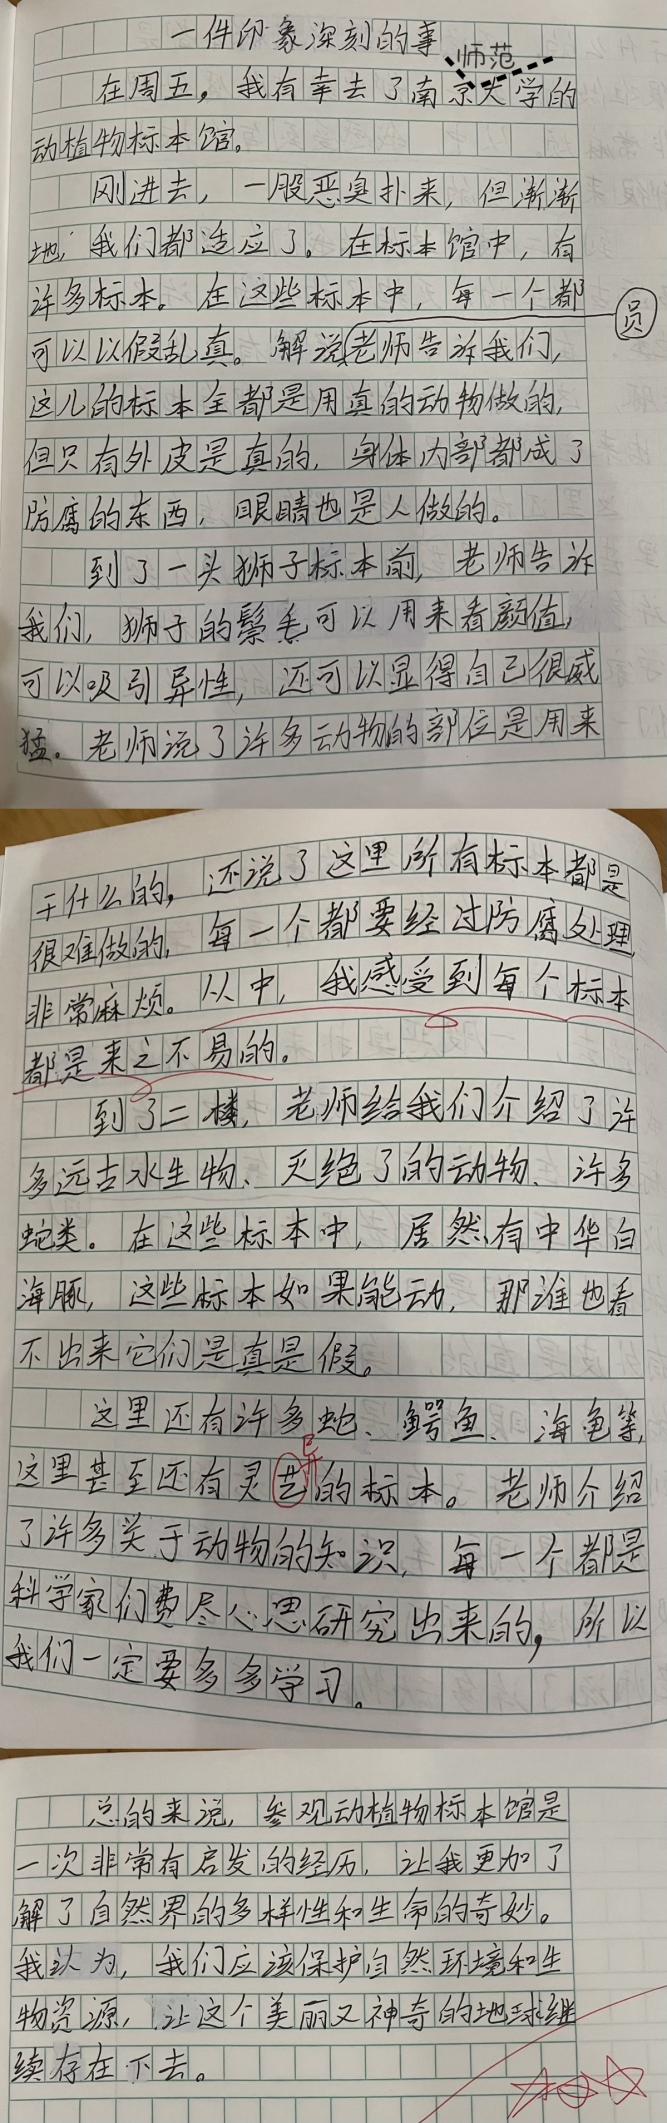 一件印象深刻的事
师范
在周五，我有幸去了南京大学的
动植物标本馆。
刚进去，一股恶臭扑来，但渐渐
地，我们都适应了。在标本馆中，有
许多标本。在这些标本中，每一个都
员
可以以假乱真。解说老师告诉我们，
这儿的标本全都是用真的动物做的，
但只有外皮是真的，身体内部都成了
防腐的东西，眼睛也是人做的。
到了一头狮子标本前，老师告诉
我们，狮子的鬃毛可以用来看颜值，
可以吸引异性，还可以显得自己很威
猛。老师说了许多动物的部位是用来
干什么的，还说了这里所有标本都是
很难做的，每一个都要经过防腐处理，
非常麻烦。从中，我感受到每个标本
都是来之不易的。
到了二楼，老师给我们介绍了许
多远古水生物、灭绝了的动物、许多
蛇类。在这些标本中，居然有中华白
海豚，这些标本如果能动，那谁也看
不出来它们是真是假。
这里还有许多蛇、鳄鱼、海龟等，
异
这里甚至还有灵芝的标本。老师介绍
了许多关于动物的知识，每一个都是
科学家们费尽心思研究出来的，所以
我们一定要多多学习。
总的来说，参观动植物标本馆是
一次非常有启发的经历，让我更加了
解了自然界的多样性和生命的奇妙。
我认为，我们应该保护自然环境和生
物资源，让这个美丽又神奇的地球继
续存在下去。